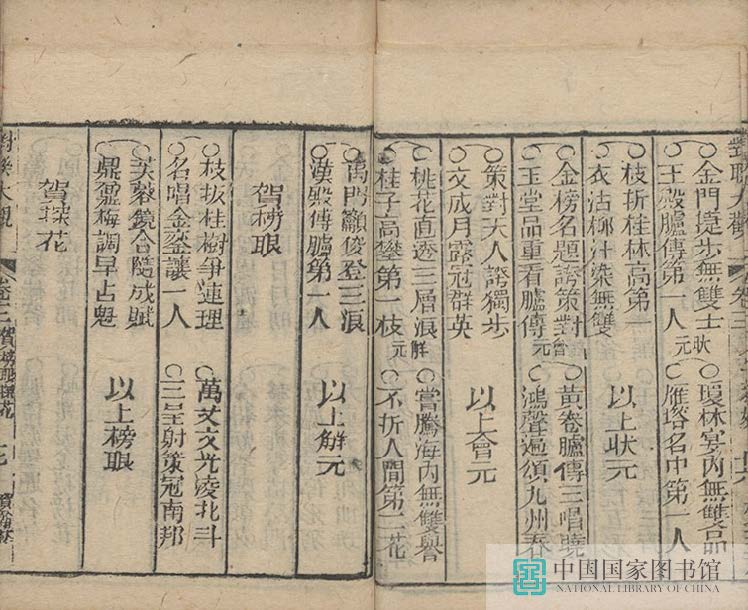 對聯大觀
金門捷步無雙士 狀 瓊林宴內無雙品
玉殿臚傳第一人 元 雁塔名中第一人
枝折桂林高第一
衣沾柳汁染無雙
以上狀元
金榜名題誇策對 會 黃卷臚傳三唱曉
玉堂品重看臚傳 元 鴻聲遍頌九州春
策對天人誇獨步
文成月露冠群英
以上會元
桃花直透三層浪 解 嘗騰海內無雙譽
桂子高攀第一枝 元 不折人間第二花
禹門籲俊登三浪
漢殿傳臚第一人
以上解元
賀榜眼
枝折桂樹爭連理 萬丈文光凌北斗
名唱金鑾讓一人 三呈射策冠南邦
芙蓉鏡合隨成賦
鼎鹽梅調早占魁
以上榜眼
賀探花
對聯大觀
卷三 賀榜眼探花
中国国家图书馆
NATIONAL LIBRARY OF CHINA